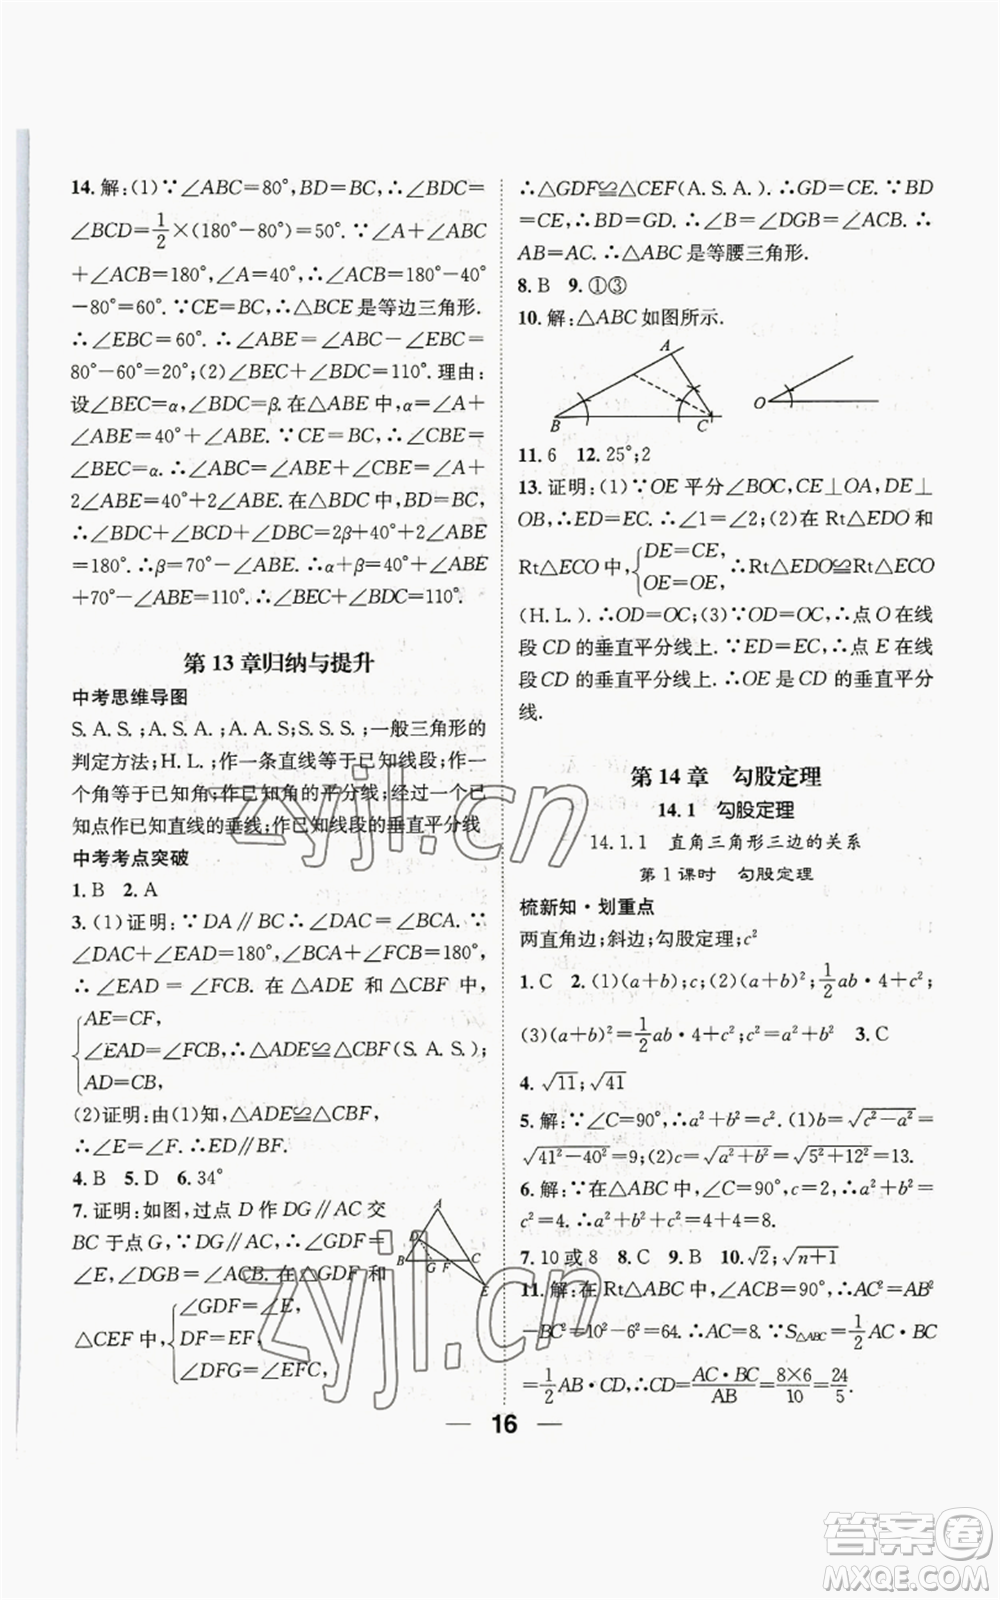 14. 解:(1)∵∠ABC=80°,BD=BC,∴∠BDC=
∠BCD=1/2×(180°-80°)=50°. ∵∠A+∠ABC
+∠ACB=180°,∠A=40°,∴∠ACB=180°-40°
-80°=60°. ∵CE=BC,∴△BCE是等边三角形.
∴∠EBC=60°. ∴∠ABE=∠ABC-∠EBC=
80°-60°=20°;(2)∠BEC+∠BDC=110°. 理由:
设∠BEC=α,∠BDC=β. 在△ABE中,α=∠A+
∠ABE=40°+∠ABE. ∵CE=BC,∴∠CBE=
∠BEC=α. ∴∠ABC=∠ABE+∠CBE=∠A+
2∠ABE=40°+2∠ABE. 在△BDC中,BD=BC,
∴∠BDC+∠BCD+∠DBC=2β+40°+2∠ABE
=180°. ∴β=70°-∠ABE. ∴α+β=40°+∠ABE
+70°-∠ABE=110°. ∴∠BEC+∠BDC=110°.
第13章归纳与提升
中考思维导图
S. A. S. ;A. S. A. ;A. A. S;S. S. S. ;一般三角形的
判定方法;H. L. ;作一条直线等于已知线段;作一
个角等于已知角;作已知角的平分线;经过一已
知点作已知直线的垂线;作已知线段的垂直平分线
中考考点突破
1. B 2. A
3. (1)证明:∵DA∥BC∴∠DAC=∠BCA. ∵
∠DAC+∠EAD=180°,∠BCA+∠FCB=180°,
∴∠EAD=∠FCB. 在△ADE和△CBF中,
{AE=CF,
∠EAD=∠FCB,∴△ADE≌△CBF(S. A. S.);
AD=CB,
(2)证明:由(1)知,△ADE≌△CBF,
∴∠E=∠F. ∴ED∥BF.
4. B 5. D 6. 34°
7. 证明:如图,过点D作DG∥AC交
BC于点G,∵DG∥AC,∴∠GDF=
∠E,∠DGB=∠ACB. 在△GDF和
△CEF中,{∠GDF=∠E,
DF=EF,
∠DFG=∠EFC,
A
D
B G F C
E
∴△GDF≌△CEF(A. S. A.). ∴GD=CE. ∵BD
=CE,∴BD=GD. ∴∠B=∠DGB=∠ACB. ∴
AB=AC. ∴△ABC是等腰三角形.
8. B 9. ①③
10. 解:△ABC如图所示.
A
B C O
11. 6 12. 25°;2
13. 证明:(1)∵OE平分∠BOC,CE⊥OA,DE⊥
OB,∴ED=EC. ∴∠1=∠2;(2)在Rt△EDO和
Rt△ECO中,{DE=CE,
OE=OE,∴Rt△EDO≌Rt△ECO
(H. L.). ∴OD=OC;(3)∵OD=OC,∴点O在线
段CD的垂直平分线上. ∵ED=EC,∴点E在线
段CD的垂直平分线上. ∴OE是CD的垂直平分
线.
第14章 勾股定理
14.1 勾股定理
14.1.1 直角三角形三边的关系
第1课时 勾股定理
梳新知·划重点
两直角边;斜边;勾股定理;c²
1. C 2. (1)(a+b);(a+b);(2)1/2ab·4+c²;
(3)(a+b)²=1/2ab·4+c²;c²=a²+b² 3. C
4. √11;√41
5. 解:∵∠C=90°,∴a²+b²=c². (1)b=√(c²-a²)=
√(41²-40²)=9;(2)c=√(a²+b²)=√(5²+12²)=13.
6. 解:∵在△ABC中,∠C=90°,c=2,∴a²+b²=
c²=4. ∴a²+b²+c²=4+4=8.
7. 10或8 8. C 9. B 10. √2;√(n+1)
11. 解:在Rt△ABC中,∠ACB=90°,∴AC²=AB²
-BC²=10²-6²=64. ∴AC=8. ∵S△ABC=1/2AC·BC
=1/2AB·CD,∴CD=AC·BC/AB=8×6/10=24/5.
16
zyjl.cn
zyjl.cn
答案圈
MXQE.COM